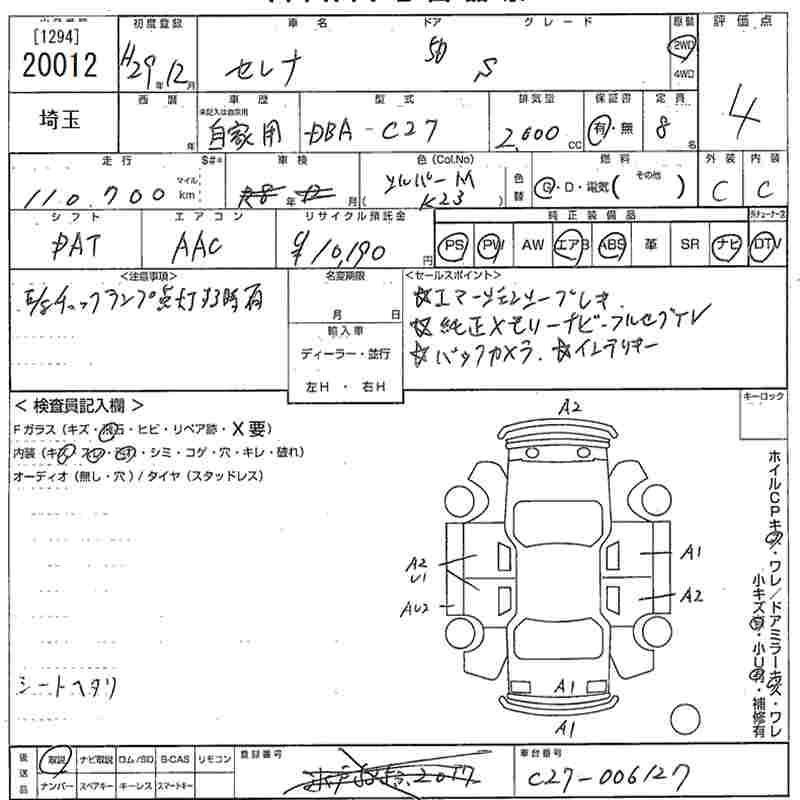 [1294]
20012
初度登録
H29年12月
車名
セレナ
ドア
5D
グレード
S
原動
2WD
4WD
評価点
4
埼玉
西暦
年
車歴
未記入は自家用
自家用
型式
DBA-C27
排気量
2,000 CC
保証書
有・無
定員
8名
走行
110,700
マイル
km
S#*
車検
R8年12月
色(Col.No)
シルバーM
( K23 )
色替
燃料
G・D・電気( その他 )
外装
C
内装
C
シフト
DAT
エアコン
AAC
リサイクル預託金
¥10,190円
純正装備品
PS PW AW エアB ABS 革 SR ナビ
DTV
<注意事項>
E/gチェックランプ点灯する時有
名変期限
月 日
輸入車
ディーラー・並行
左H・右H
<セールスポイント>
☆エマージェンシーブレーキ
☆純正メモリーナビ・フルセグTV
☆バックカメラ. ☆インテリキー
<検査員記入欄>
Fガラス(キズ・飛石・ヒビ・リペア跡・X要)
内装(キズ・スレ・汚れ・シミ・コゲ・穴・キレ・破れ)
オーディオ(無し・穴)/タイヤ(スタッドレス)
シートヘタリ
キーロック
A2
A2
U1
AU2
A1
A2
A1
A1
ホイルCPキズ・ワレ/ドアミラーキズ・ワレ
小キズ有・小U有・補修有
後送品
取説 ナビ取説 ロム/SD B-CAS リモコン
ナンバー スペアキー キーレス スマートキー
登録番号
2017
車台番号
C27-006127